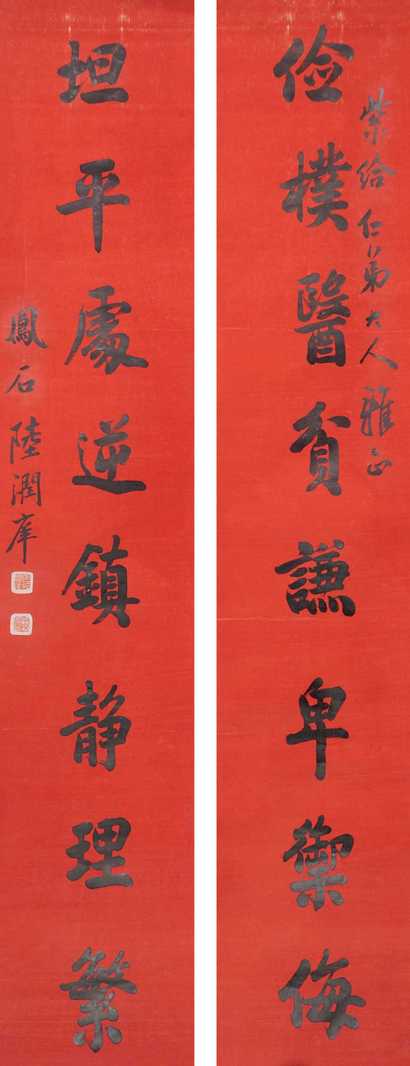 紫給仁弟大人雅正
儉樸醫貧謙卑禦侮
坦平處逆鎮靜理繁
鳳石陸潤庠